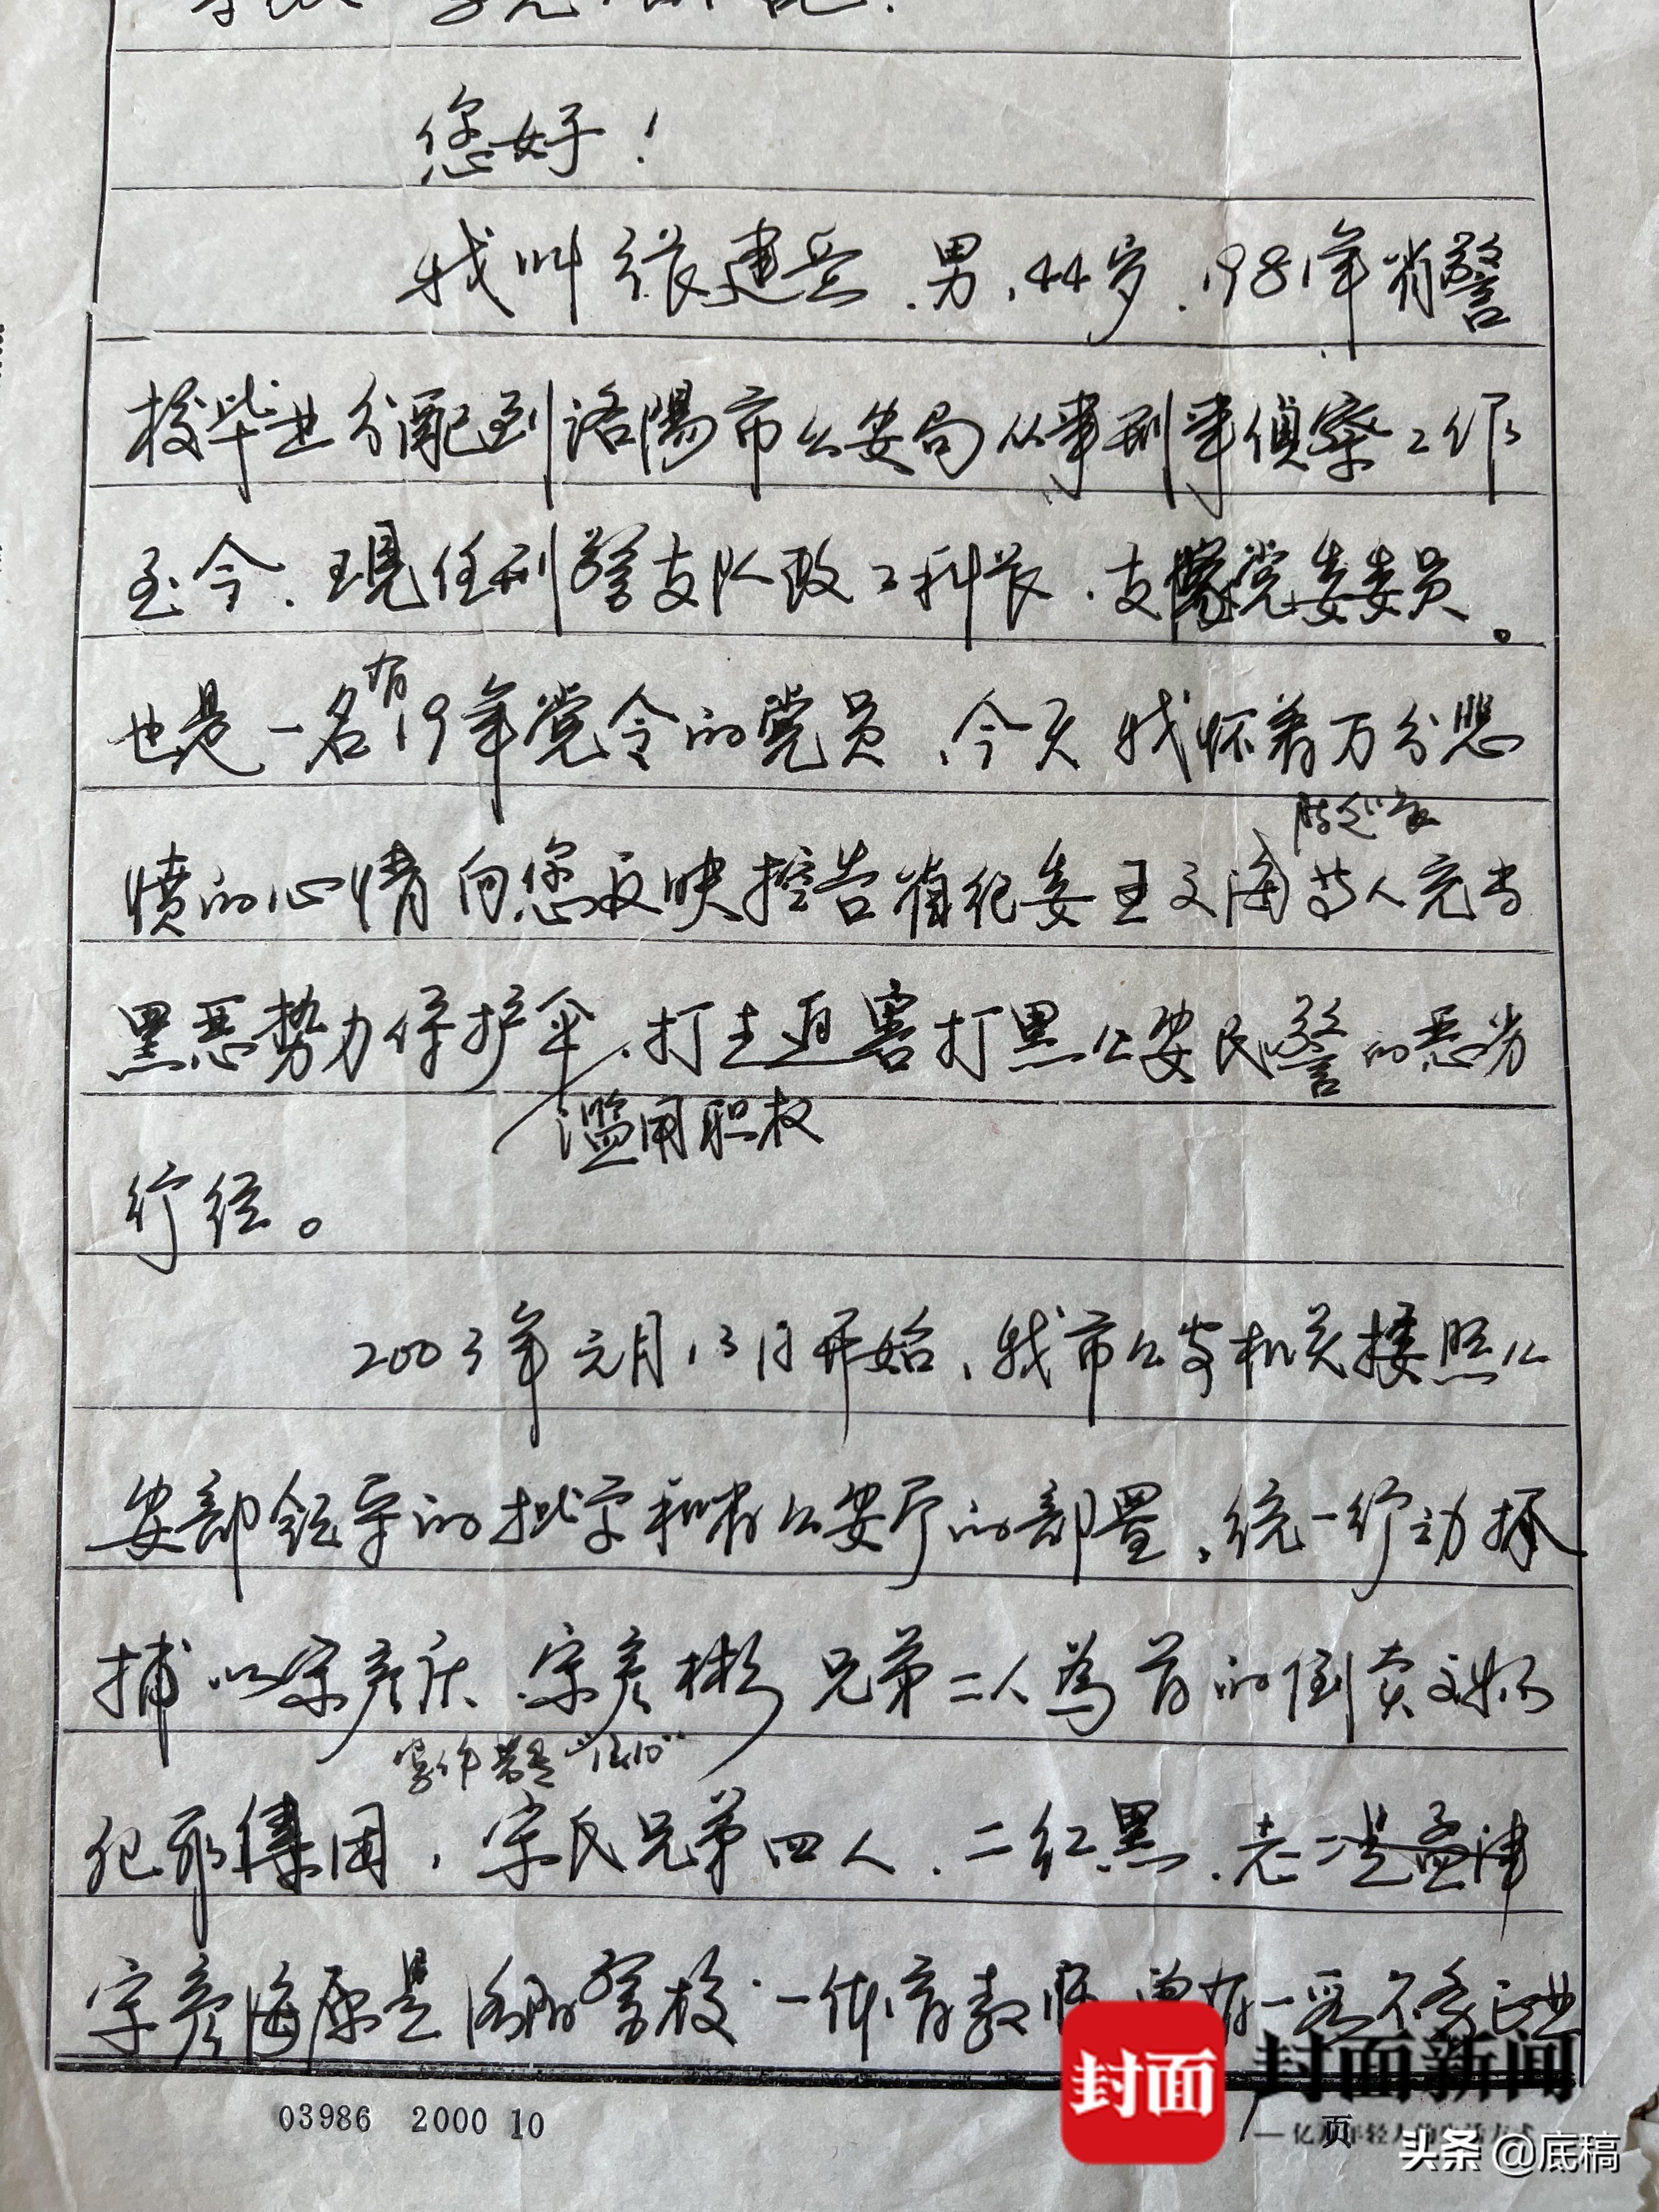 您好!
我叫张建岳、男、44岁、1981年省警
校毕业分配到洛陽市公安局从事刑事侦察工作
至今、现任刑警支队政工科长、支队党委委员。
也是一名有19年党令的党员、今天我怀着万分悲
愤的心情向您反映控告省纪委王文海等人充当
黑恶势力保护伞、打击迫害打黑公安民警的恶劣
滥用职权
行径。
2003年元月13日开始、我市公安机关按照公
安部领导的批字和省公安厅的部署、统一行动抓
捕以宋彦庆、宋彦彬兄弟二人為首的倒卖文物
犯罪集团、宋氏兄弟四人、二红二黑、老二是孟津
宋彦海原是洛阳警校一体育教师
03986 2000 10
页
封面
封面新闻
头条 @底稿